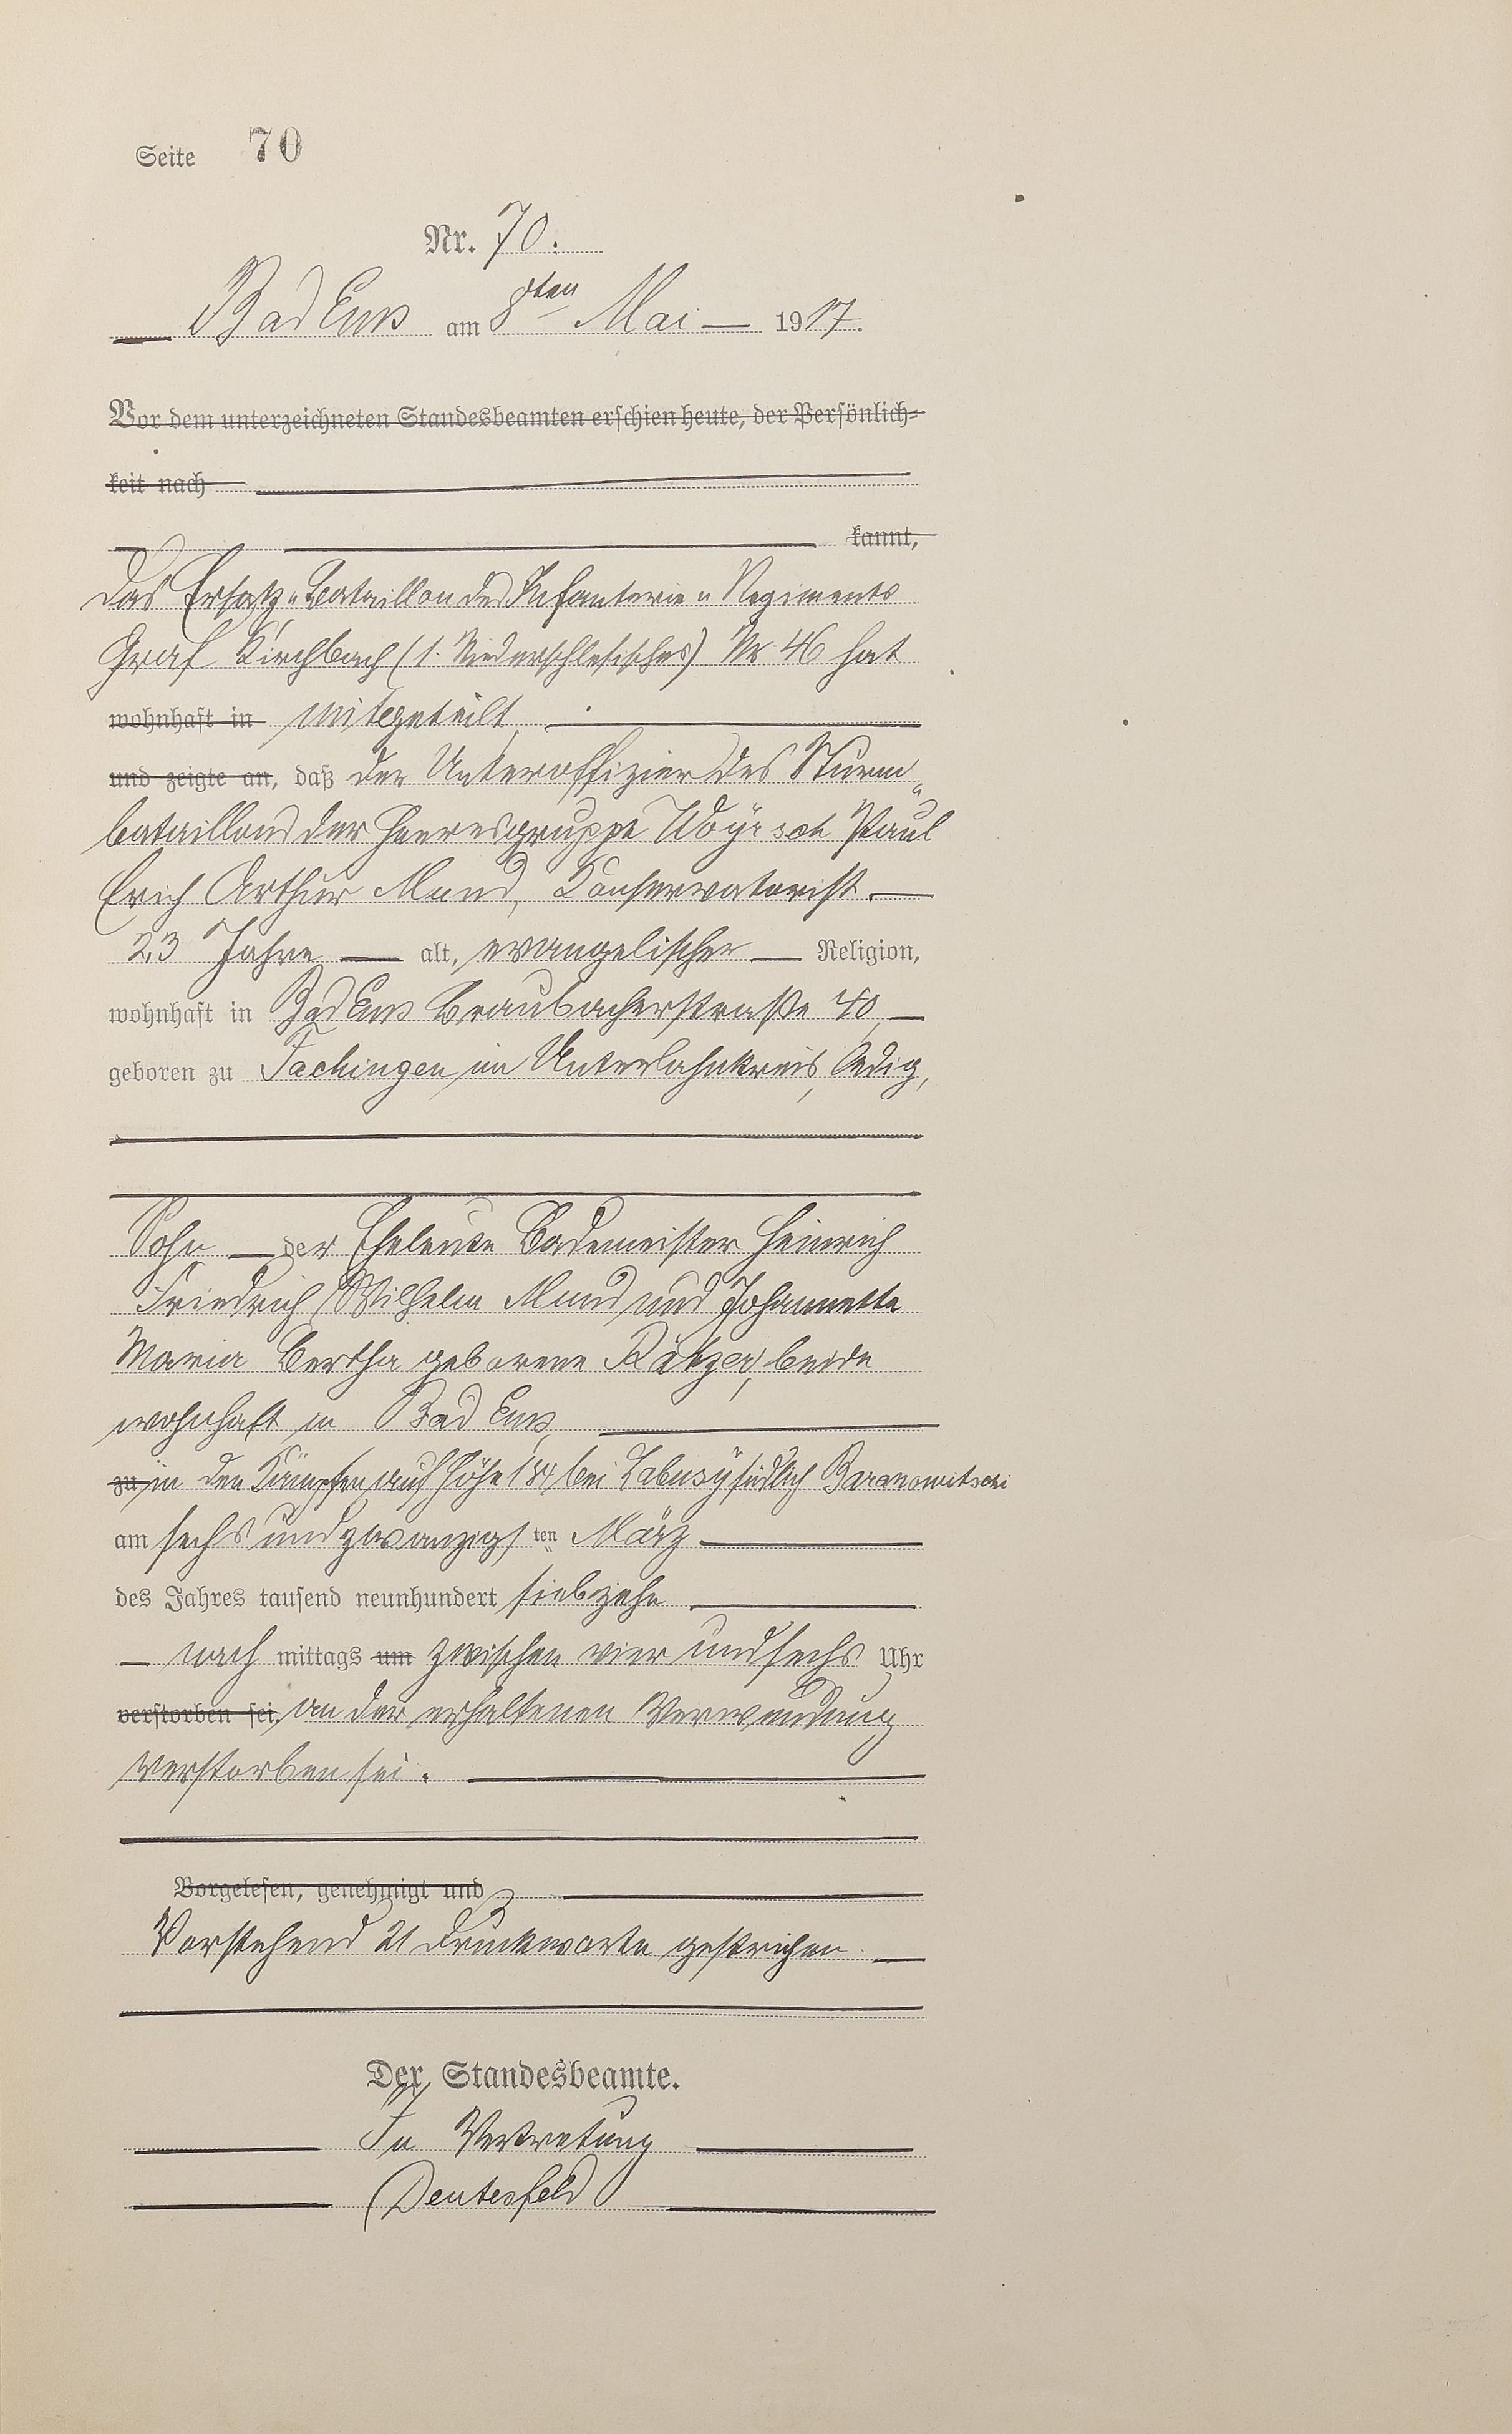 Seite 70
Nr. 70.
Bad Ems am 8ten Mai 1917.
Vor dem unterzeichneten Standesbeamten erschien heute, der Persönlich-
keit nach
kannt,
Das Ersatz-Bataillon des Infanterie-Regiments
Graf Kirchbach (1. Niederschlesisches) Nr 46 hat
wohnhaft in mitgeteilt,
und zeigte an, daß der Unteroffizier des Sturm-
bataillons der Heeresgruppe Woyrsch Paul
Erich Arthur Mund, Konservatorist.
23 Jahre alt, evangelischer Religion,
wohnhaft in Bad Ems Braubacherstraße 40
geboren zu Fachingen im Unterlahnkreis, ledig,
Sohn der Eheleute Bademeister Heinrich
Friedrich Wilhelm Mund und Johannette
Maria Bertha geborene Rätzer, beide
wohnhaft in Bad Ems,
zu in den Kämpfen auf Höhe 184 bei Labusy südlich Baranowitschi
am sechs und zwanzigsten März
des Jahres tausend neunhundert siebzehn
nach mittags um zwischen vier und sechs Uhr
verstorben sei. an der erhaltenen Verwundung
verstorben sei.
Vorgelesen, genehmigt und
Vorstehend 21 Druckworte gestrichen.
Der Standesbeamte.
In Vertretung
Deutesfeld